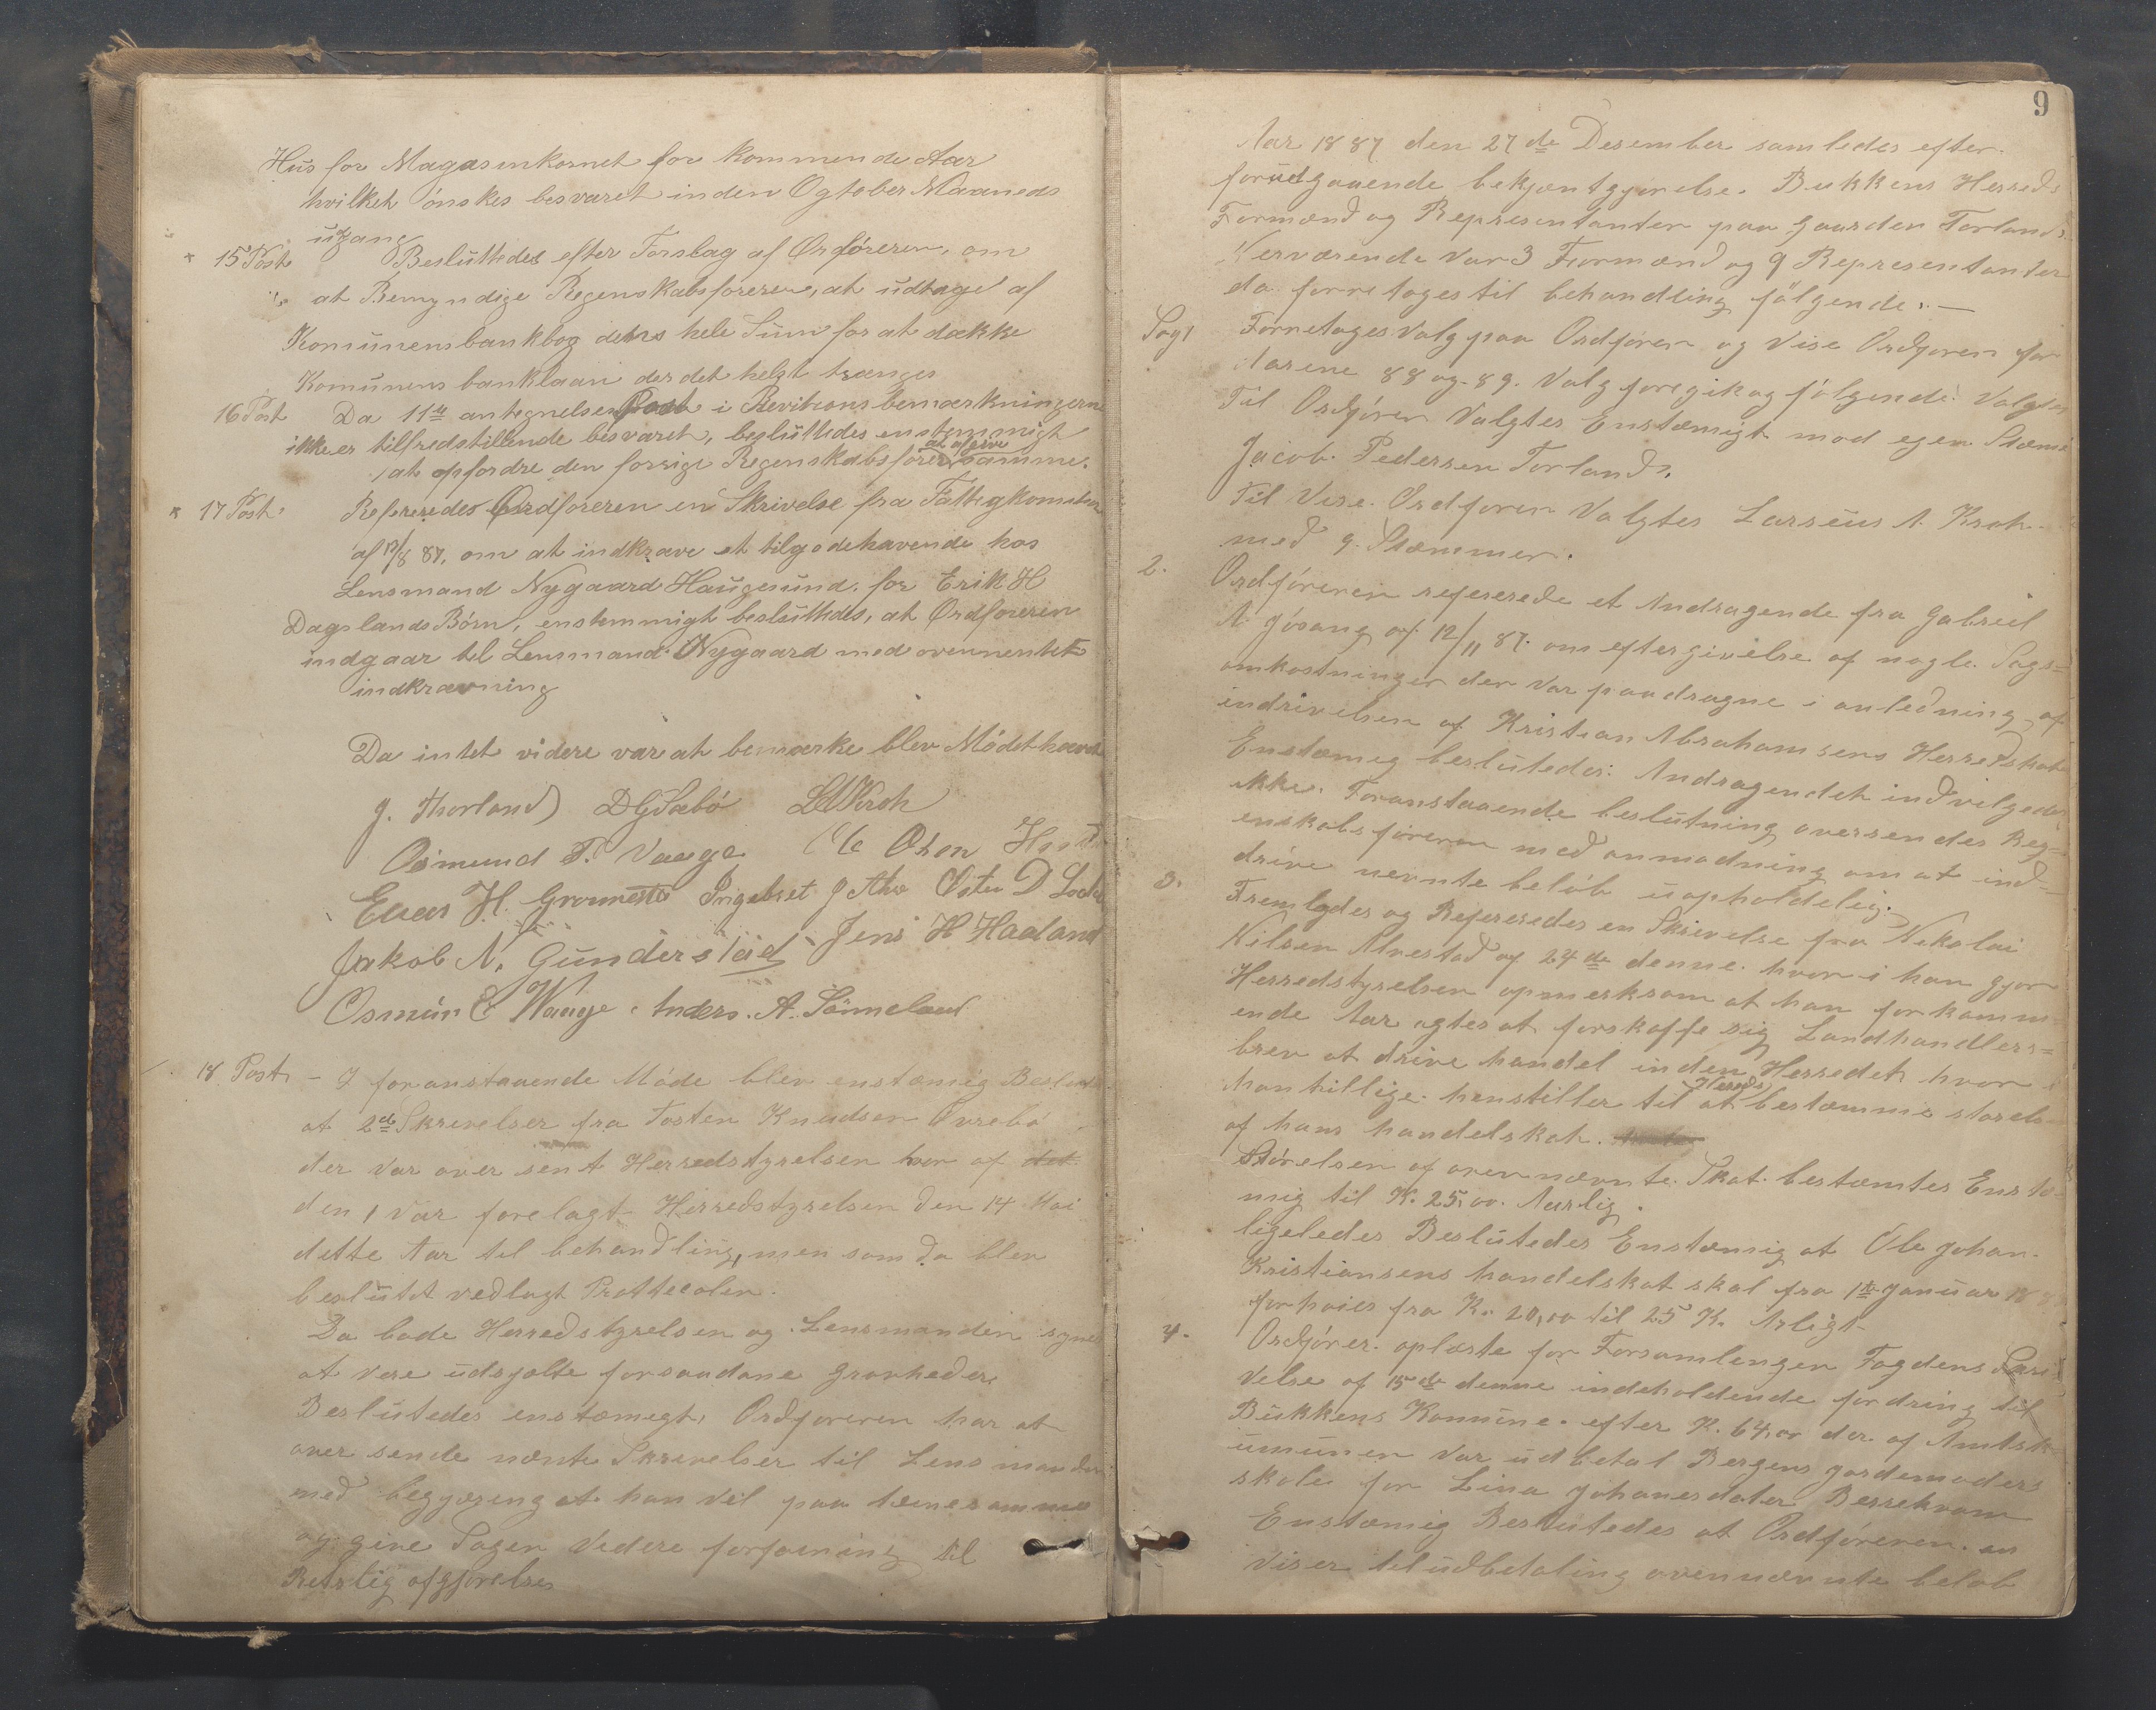 Hus for Magasenkornet for kommende Aar
hvilket ónskes besvaret inden Ogtober Maaneds
udgang
15 Post Besluttedes efter Forslag af Ordføreren, om
at Bemyndige Regenskabsføreren, at udtage af
Komunens bankbog dens hele Sum for at dække
Komunens banklaan der det helst trænges
16 Post Da 11te antegnelses Post i Revitions bemærkningerne
ikke er tilfredstillende besvaret, besluttedes enstemmigt
at opfordre den forrige Regenskabsfører at afgive samme.
17 Post Refereredes Ordføreren en Skrivelse fra Fattigkomision
af 13/8 87, om at indkræve et tilgodehavende hos
Lensmand Nygaard Haugesund, for Erik H
Dagslands Børn, enstemmigt besluttedes, at Ordføreren
indgaar til Lensmand Nygaard med ovennevnte
indkrævning
Da intet videre var at bemærke blev Mødet hævet
J. Thorland D G Sæbó L A Kroh
Osmund T. Vaage Ole Olsen
Enar H. Grønnestø Ingebret J Østen D
Jakob N. Gunderstad Jens H Haaland
Osmun E Waage Anders A. Sönneland
18 Post – I foranstaaende Móde blev enstæmig Beslut
at 2de Skrivelser fra Tosten Knudsen Øvrebó
der var over sent Herredstyrelsen hvor af det
den 1 var forelagt Herredstyrelsen den 14 Mai
dette Aar til behandling, men som da blev
beslutet vedlagt Prottecolen.
Da bode Herredstyrelsen og Lensmanden synes
at vere udsjalte for saadane grovheder,
Beslutedes enstæmegt, Ordføreren har at
over sende nevnte Skrivelser til Lensmanden
med begjæreng at han vil paa tæne samme
og give Sagen Videre forføining til
Retslig afgjørelse
9
Aar 1887 den 27de Desember samledes efter
forudgaaende bekjentgjørelse. Bukkens Herreds
Formænd og Representanter paa Gaarden Torland.
Nerværende Var 3 Formænd og 9 Representanter
da forretoges til behandling fölgende: —
Sag 1 Forretoges Valg paa Ordføren og Vise Ordføren for
Aarene 88 og 89. Valg foregik og fölgende Valgtes
Til Ordfören Valgtes Enstæmigt mod egen Stæme
Jacob Pedersen Torland.
Til Vise Ordføren Valgtes Larseus A. Kroh
med 9 Stæmmer.
2. Ordföreren refererede et Andragende fra Gabriel
A. Jósang af 12/11 87. om eftergivelse af nogle Sags=
omkostninger der Var paadragne i anledning af
indrivelsen af Kristian Abrahamsens Herredskat
Enstæmig beslutedes: Andragendet indvilgedes
ikke. Foranstaaende beslutning oversendes Reg=
enskabsføreren med anmodning om at ind=
drive nevnte belób uopholdelig.
3. Fremlagdes og Refereredes en Skrivelse fra Nikolai
Nilsen Alvestad af 24de denne. hvor i han gjør
Herredstyrelsen opmerksom at han for komm=
ende Aar agtes at forskaffe sig Landhandlers=
brev at drive handel inden Herredet hvor
han tillige henstiller til Hereds at bestæmme storels
af hans handelskat.
Størelsen af ovennævnte Skat bestæmtes Enstæ
mig til K. 25,00 Aarlig.
ligeledes Beslutedes Enstæmig at Ole Johan
Kristiansens handelskat skal fra 1te Januar 18
forhøies fra K. 20,00 til 25 K. Arligt
4. Ordfører oplæste for Forsamlengen Fogdens Skri
velse af 15de denne indeholdende fordring til
Bukkens Komune efter K. 64,00 der af Amtsk
umunen var udbetal Bergens Jordemoders
skole for Lina Johanesdater
Enstæmig Beslutedes at Ordføreren an
viser til udbetaling ovennævnte beløb